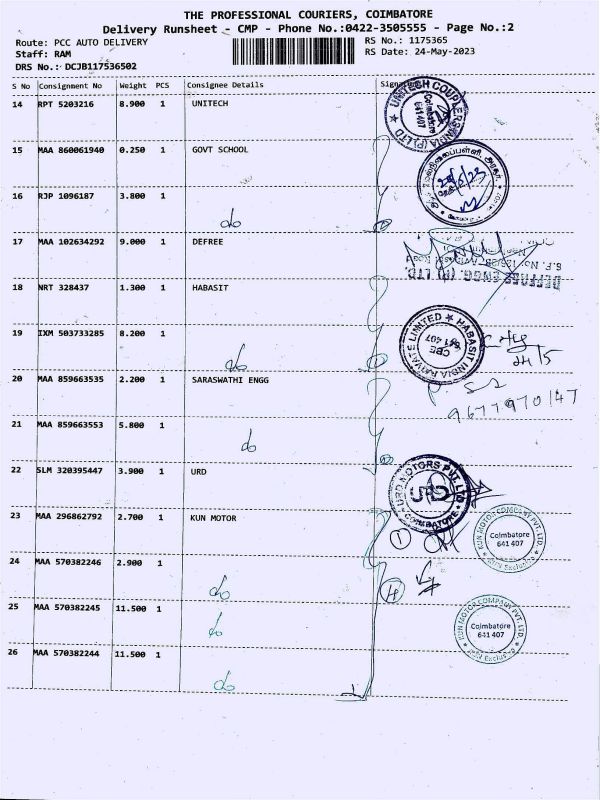 THE PROFESSIONAL COURIERS, COIMBATORE
Delivery Runsheet - CMP - Phone No.:0422-3505555 - Page No.:2
Route: PCC AUTO DELIVERY
RS No.: 1175365
Staff: RAM
RS Date: 24-May-2023
DRS No.: DCJB117536502
S No Consignment No Weight PCS Consignee Details
14 RPT 5203216 8.900 1 UNITECH
UNITECH COUPLERS INDIA (P) LTD
Coimbatore
641 407
15 MAA 860061940 0.250 1 GOVT SCHOOL
16 RJP 1096187 3.800 1
do
17 MAA 102634292 9.000 1 DEFREE
18 NRT 328437 1.300 1 HABASIT
HABASIT INDIA PRIVATE LIMITED
CBE
641 407
24/5
19 IXM 503733285 8.200 1
do
20 MAA 859663535 2.200 1 SARASWATHI ENGG
9677970147
21 MAA 859663553 5.800 1
do
22 SLM 320395447 3.900 1 URD
URD MOTORS PVT. LTD
URD
COIMBATORE
23 MAA 296862792 2.700 1 KUN MOTOR
1
KUN MOTOR COMPANY PVT. LTD.
Coimbatore
641 407
KUN Exclusive
24 MAA 570382246 2.900 1
do
4
25 MAA 570382245 11.500 1
do
KUN MOTOR COMPANY PVT. LTD.
Coimbatore
641 407
KUN Exclusive
26 MAA 570382244 11.500 1
do